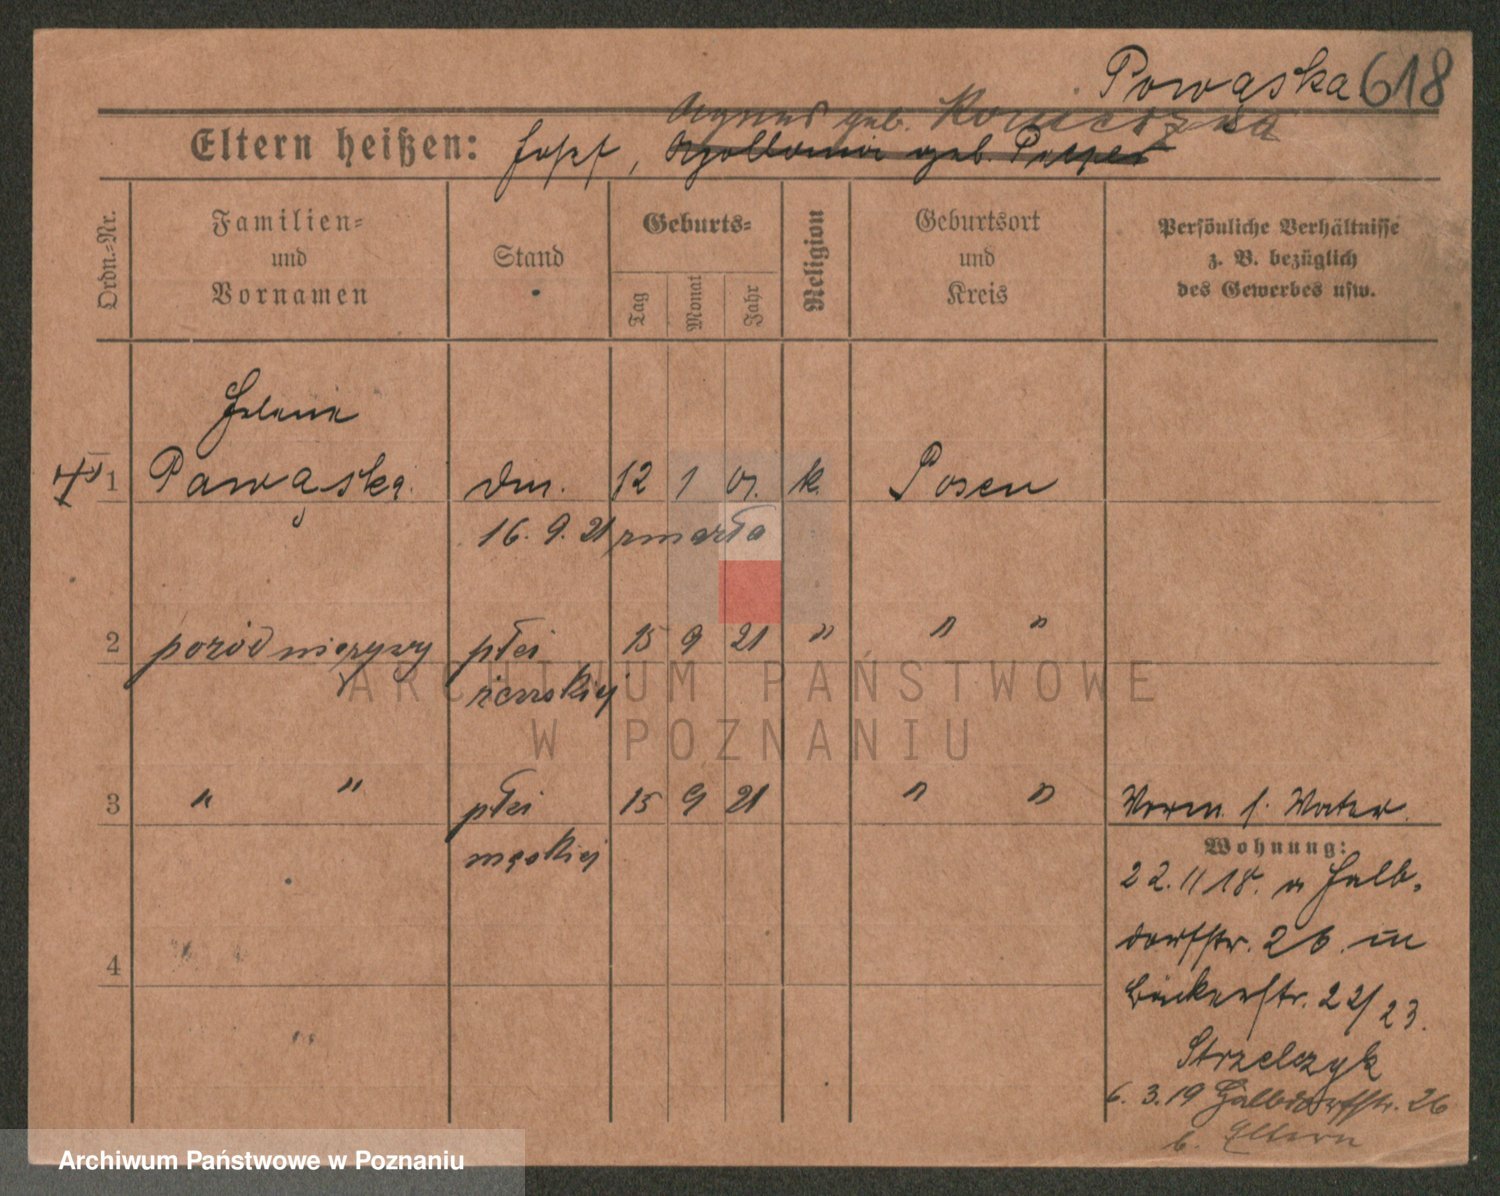 Powąska 618
Agnes geb. Konieczka
Eltern heißen: Josef, Apollonia geb.
Ordn.-Nr.
Familien-
und
Vornamen
Stand
Geburts-
Tag
Monat
Jahr
Religion
Geburtsort
und
Kreis
Persönliche Verhältnisse
z. B. bezüglich
des Gewerbes usw.
Helene
1 Pawąska. dm. 12 1 01. k. Posen
16. 9. 21 zmarła
2 poród nieżywy płci 15 9 21 " " "
żeńskiej
3 " " płci 15 9 21 " "
męskiej
4
Verm. s. Vater.
Wohnung:
22.11 18. v Halb-
dorfstr. 26 in
Bäckerstr. 22/23.
Strzelczyk
6. 3. 19 Halbdorfstr. 26
b. Eltern
ARCHIWUM PAŃSTWOWE
W POZNANIU
Archiwum Państwowe w Poznaniu